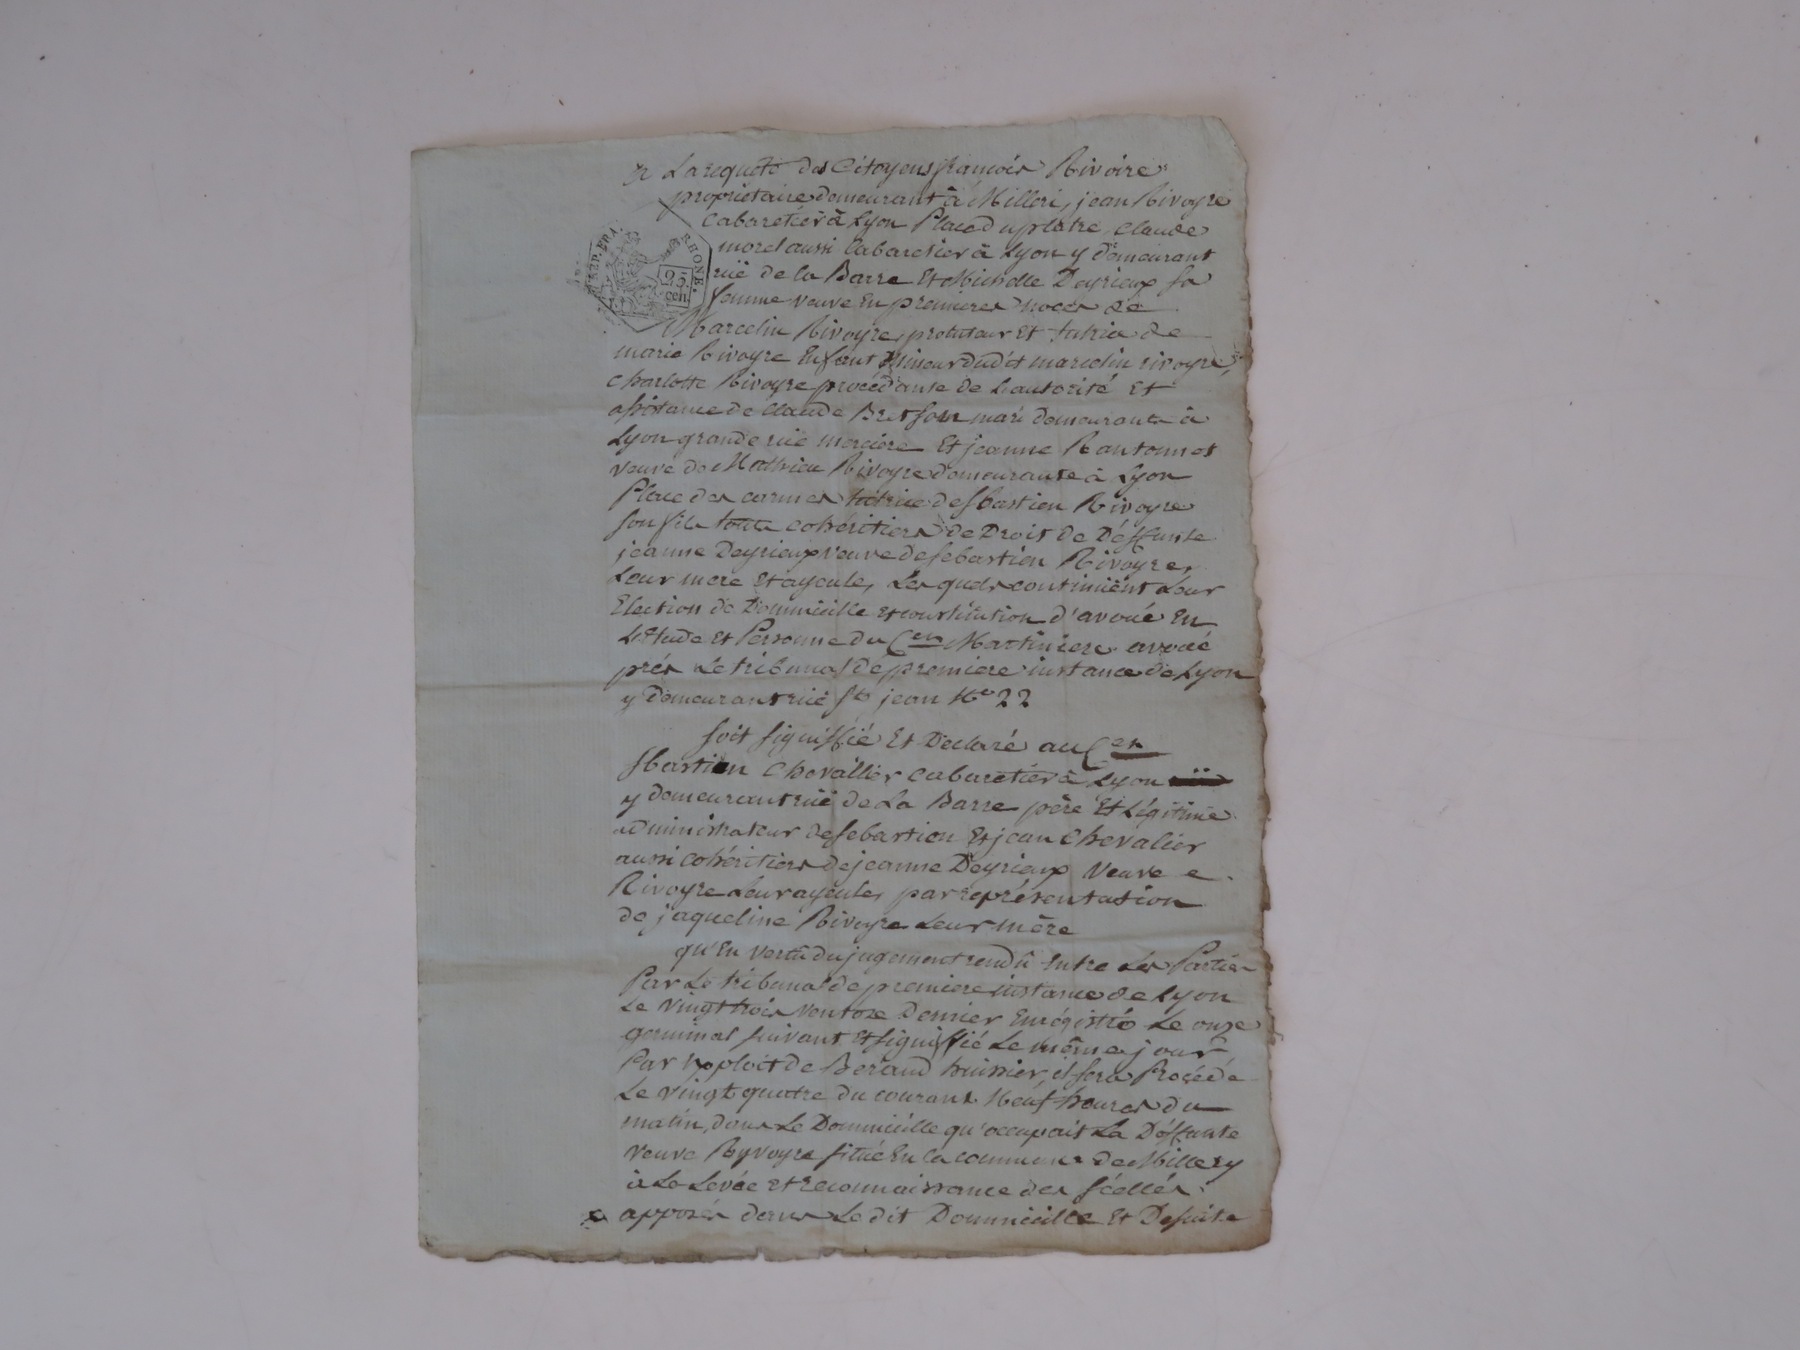 A La requete des Citoyens françois Rivoire
propriétaire demeurant à Milleri, jean Rivoyre
Cabaretier à Lyon Place du platre, Claude
morel aussi Cabaretier à Lyon y demeurant
ruë de la Barre Et Michelle Deyrieux sa
femme veuve En premieres noces de
Marcelin Rivoyre, protuteur Et tutrice de
marie Rivoyre Enfant Mineur dudit marcelin rivoyre,
Charlotte Rivoyre procédante de L'autorité Et
assistance de Claude Bret son mari demeurante à
Lyon grande ruë merciere Et jeanne Rantonnet
veuve de Mathieu Rivoyre demeurante à Lyon
Place des carmes tutrice de sbastien Rivoyre
son fils touts cohéritiers de Droit de Déffunte
jeanne Deyrieux veuve de sebastien Rivoyre,
Leur mere Et ayeule, Lesquels continuënt Leur
Election de Domnicille et constitution d'avoué En
L'Etude et Personne du Cen Martiniere avoué
près Le tribunal de premiere instance de Lyon
y demeurant ruë St jean No 22
soit signiffié Et Déclaré au Cen
sbastien Chevallier cabaretier à Lyon
y demeurant ruë de La Barre père Et Légitime
administrateur de sebastien Et jean Chevalier
aussi cohéritiers de jeanne Deyrieux Veuve
Rivoyre Leur ayeule, par représentation
de jaqueline Rivoyre Leur mère
qu'En vertu du jugement rendû Entre Les Parties
Par Le tribunal de premiere instance de Lyon
Le Vingt trois Ventose Dernier Enrégistré Le onze
germinal suivant Et signiffié Le même jour
Par Exploit de Beraud huissier, il sera Procédé
Le vingt quatre du courant Neuf heures du
matin, dans Le Domnicille qu'occupait La Déffunte
veuve Ryvoyre situé En la commune de Millery
à La Levée et reconnaissance des scellés
apposés dans Le dit Domnicille Et De suite
REP. FRA.
RHONE.
25
cen